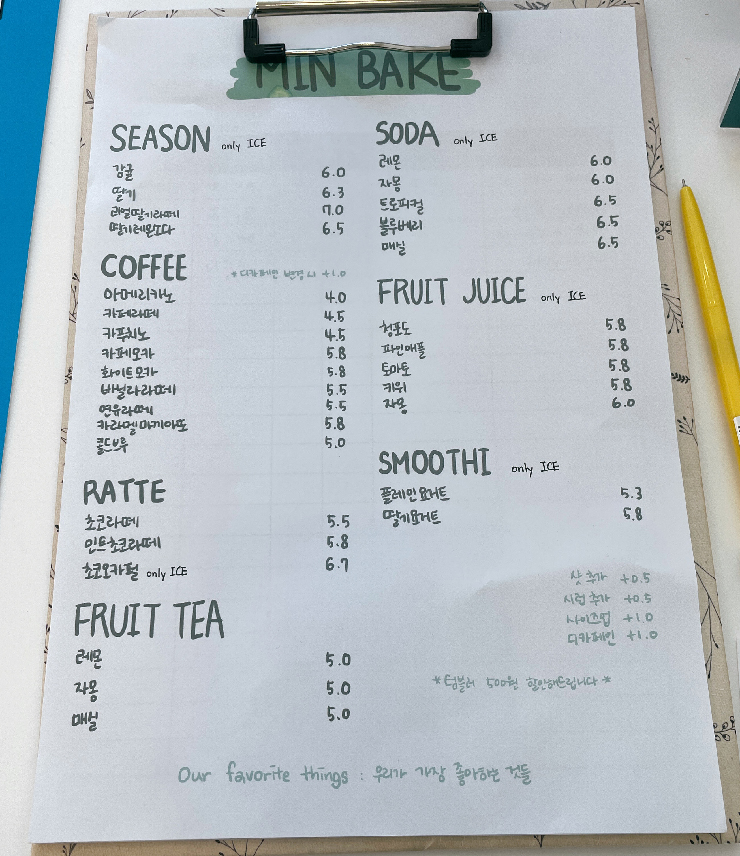 MIN BAKE
SEASON only ICE
감귤 6.0
딸기 6.3
리얼딸기라떼 7.0
딸기레몬소다 6.5
COFFEE *디카페인 변경시 +1.0
아메리카노 4.0
카페라떼 4.5
카푸치노 4.5
카페모카 5.8
화이트모카 5.8
바닐라라떼 5.5
연유라떼 5.5
카라멜마끼아또 5.8
콜드브루 5.0
RATTE
초코라떼 5.5
민트초코라떼 5.8
초코오카펄 only ICE 6.7
FRUIT TEA
레몬 5.0
자몽 5.0
매실 5.0
SODA only ICE
레몬 6.0
자몽 6.0
트로피컬 6.5
블루베리 6.5
매실 6.5
FRUIT JUICE only ICE
청포도 5.8
파인애플 5.8
토마토 5.8
키위 5.8
자몽 6.0
SMOOTHI only ICE
플레인요거트 5.3
딸기요거트 5.8
샷 추가 +0.5
시럽 추가 +0.5
사이즈업 +1.0
디카페인 +1.0
*텀블러 500원 할인해드립니다*
Our favorite things : 우리가 가장 좋아하는 것들